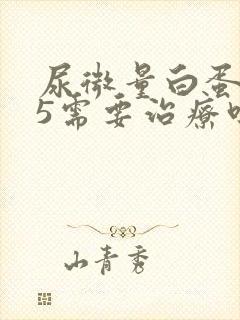 尿微量白蛋
5需要治疗
山青秀